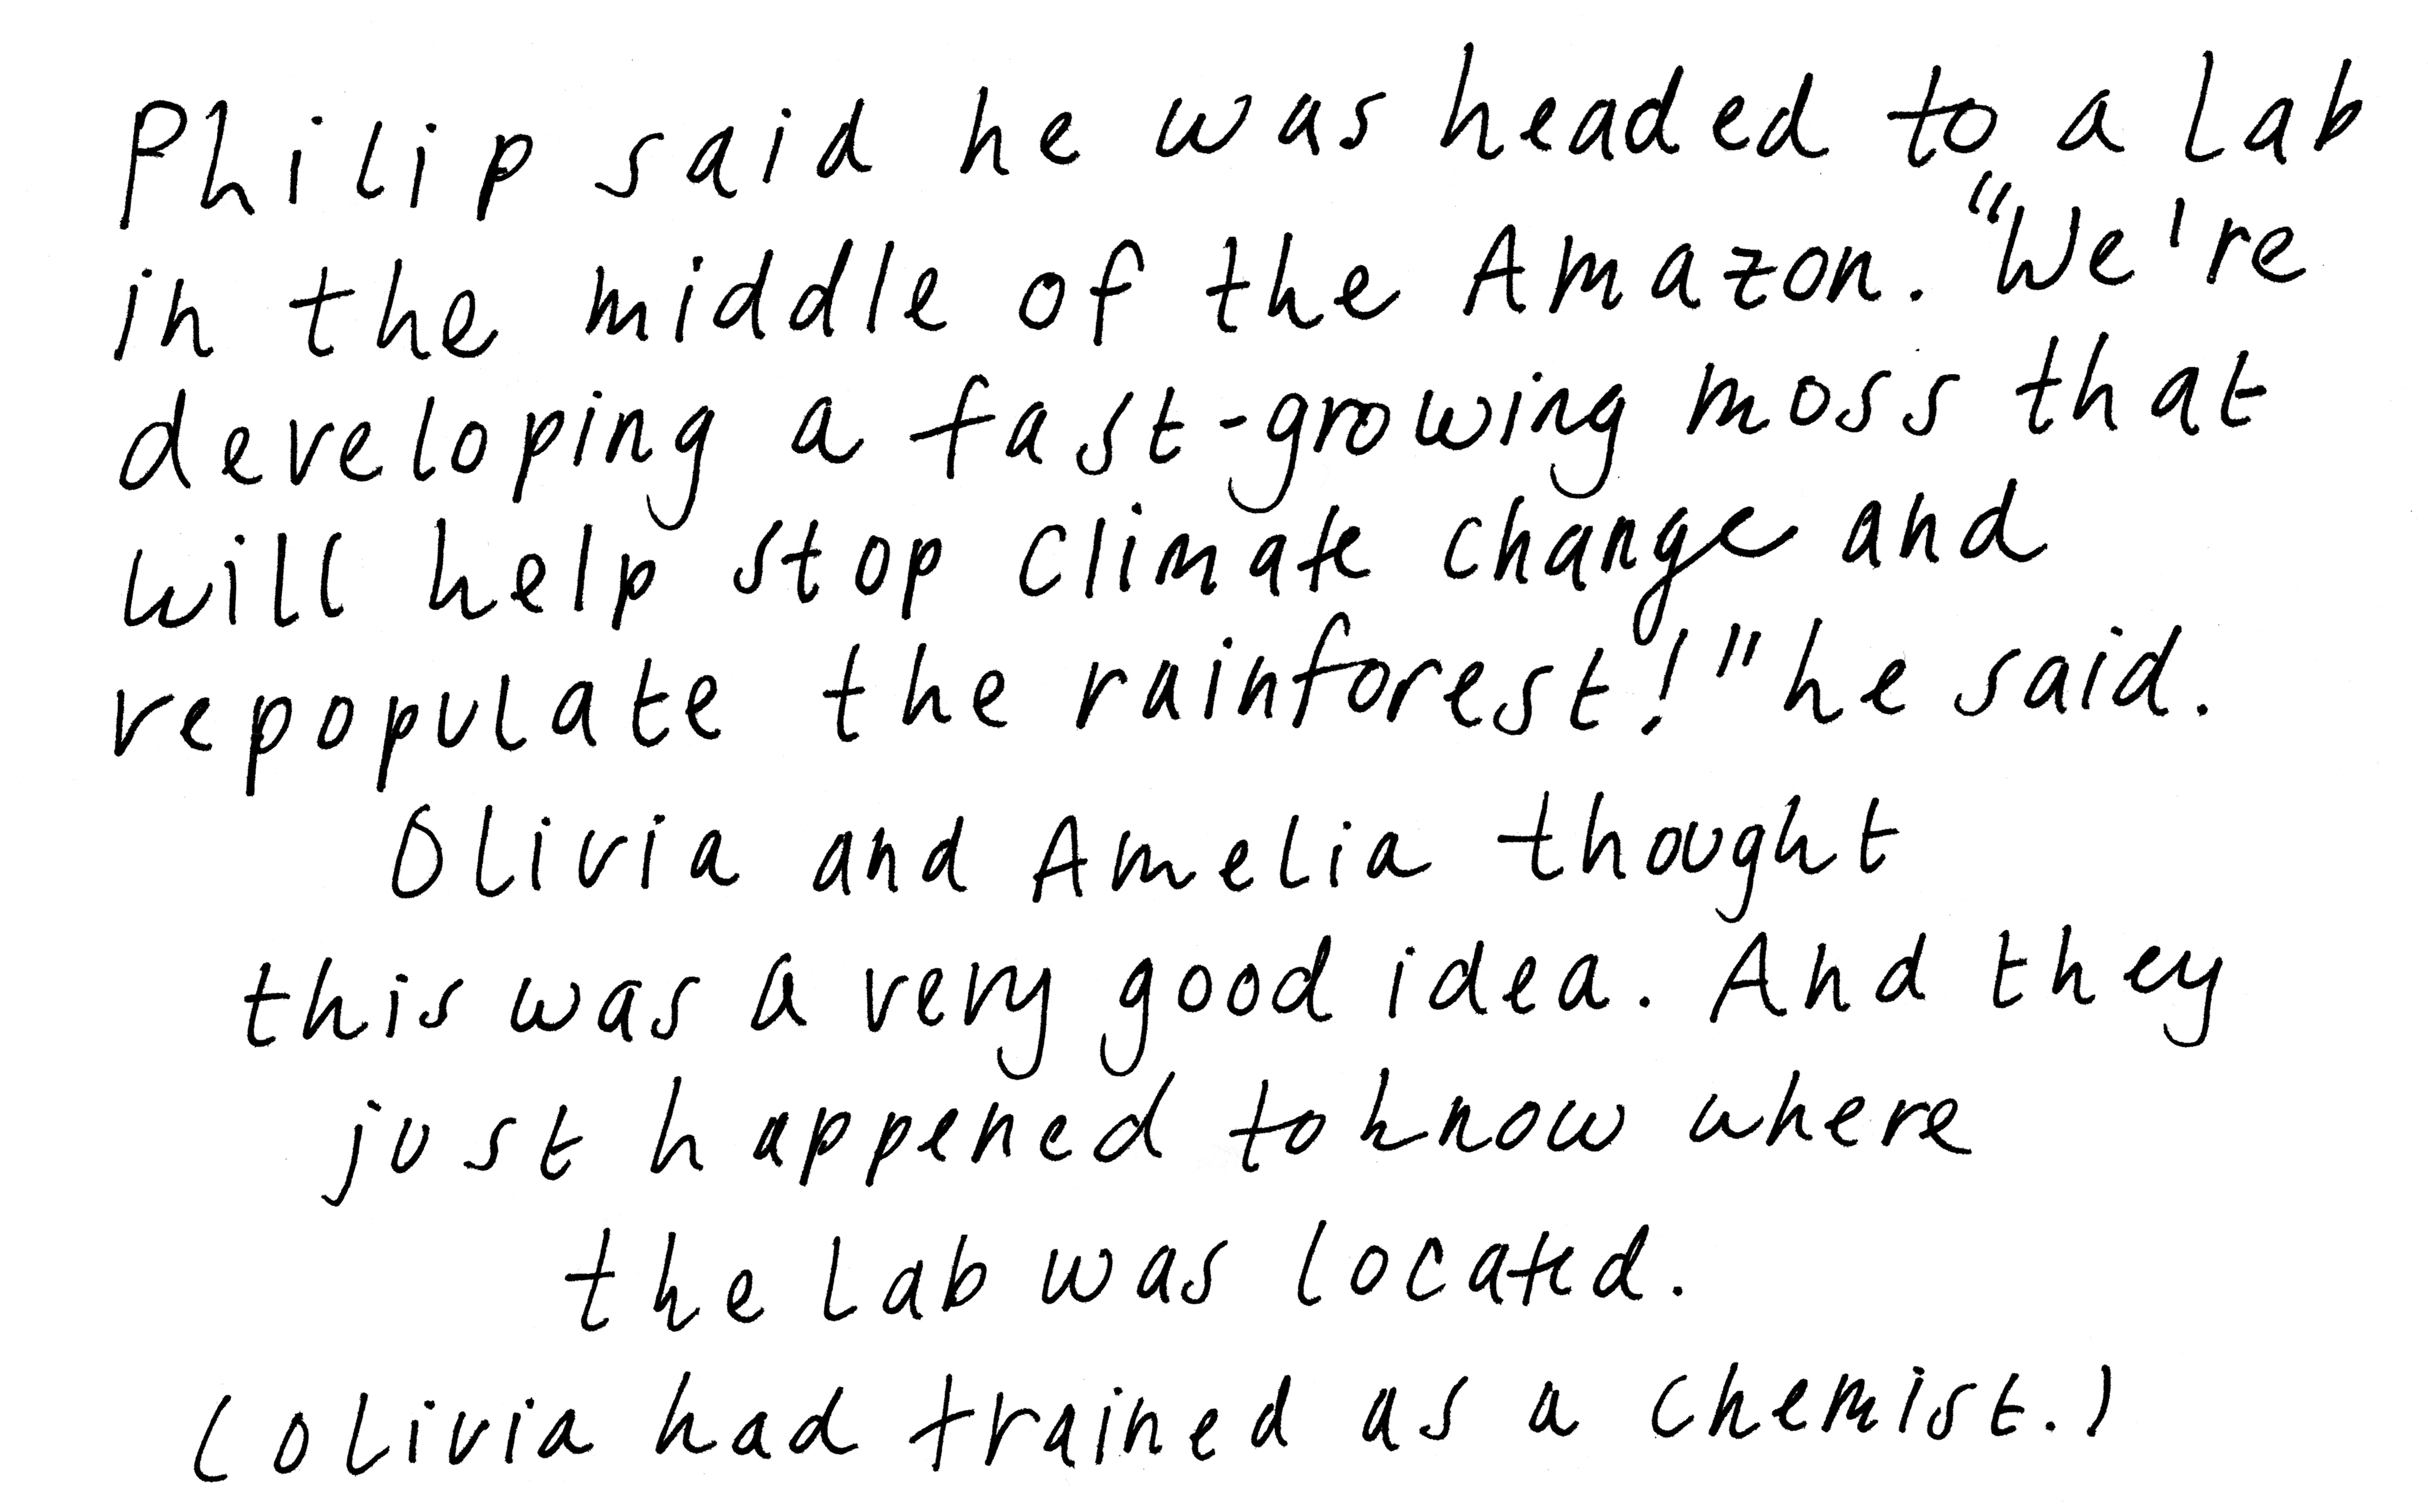 Philip said he was headed to a lab
in the middle of the Amazon. "We're
developing a fast-growing moss that
will help stop climate change and
repopulate the rainforest!" he said.
Olivia and Amelia thought
this was a very good idea. And they
just happened to know where
the lab was located.
(Olivia had trained as a chemist.)